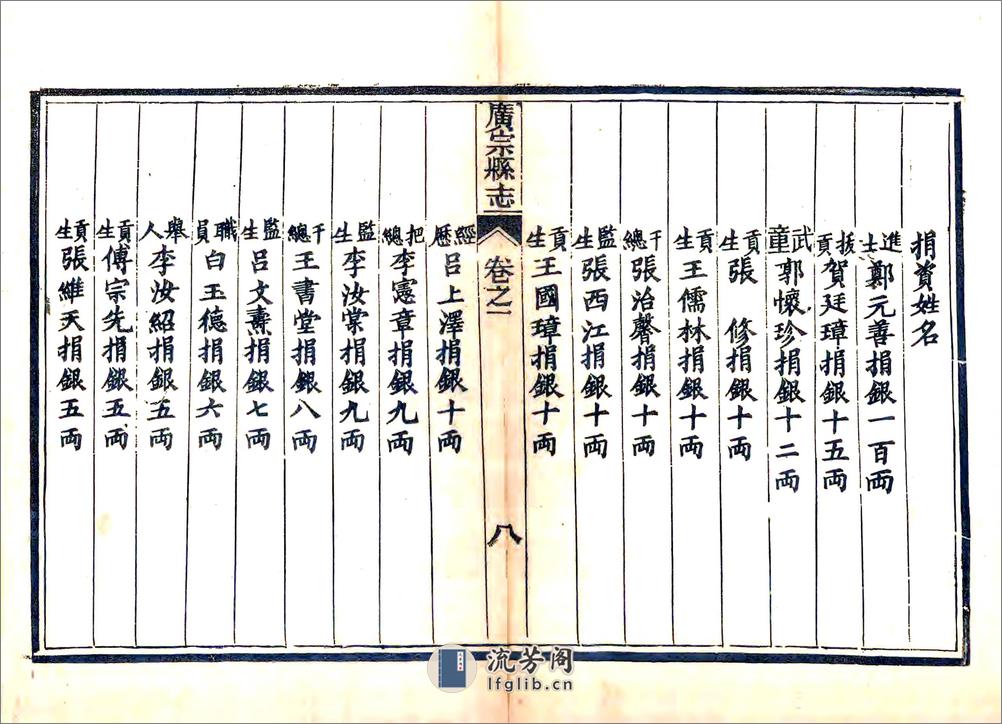 捐資姓名
進士鄭元善捐銀一百兩
拔貢賀廷璋捐銀十五兩
武童郭懷珍捐銀十二兩
貢生張　修捐銀十兩
貢生王儒林捐銀十兩
千總張治馨捐銀十兩
監生張西江捐銀十兩
貢生王國璋捐銀十兩
廣宗縣志
卷之一
八
經歷呂上澤捐銀十兩
把總李憲章捐銀九兩
監生李汝棠捐銀九兩
千總王書堂捐銀八兩
監生呂文壽捐銀七兩
職員白玉德捐銀六兩
舉人李汝紹捐銀五兩
貢生傅宗先捐銀五兩
貢生張維天捐銀五兩
流芳阁
lfglib.cn